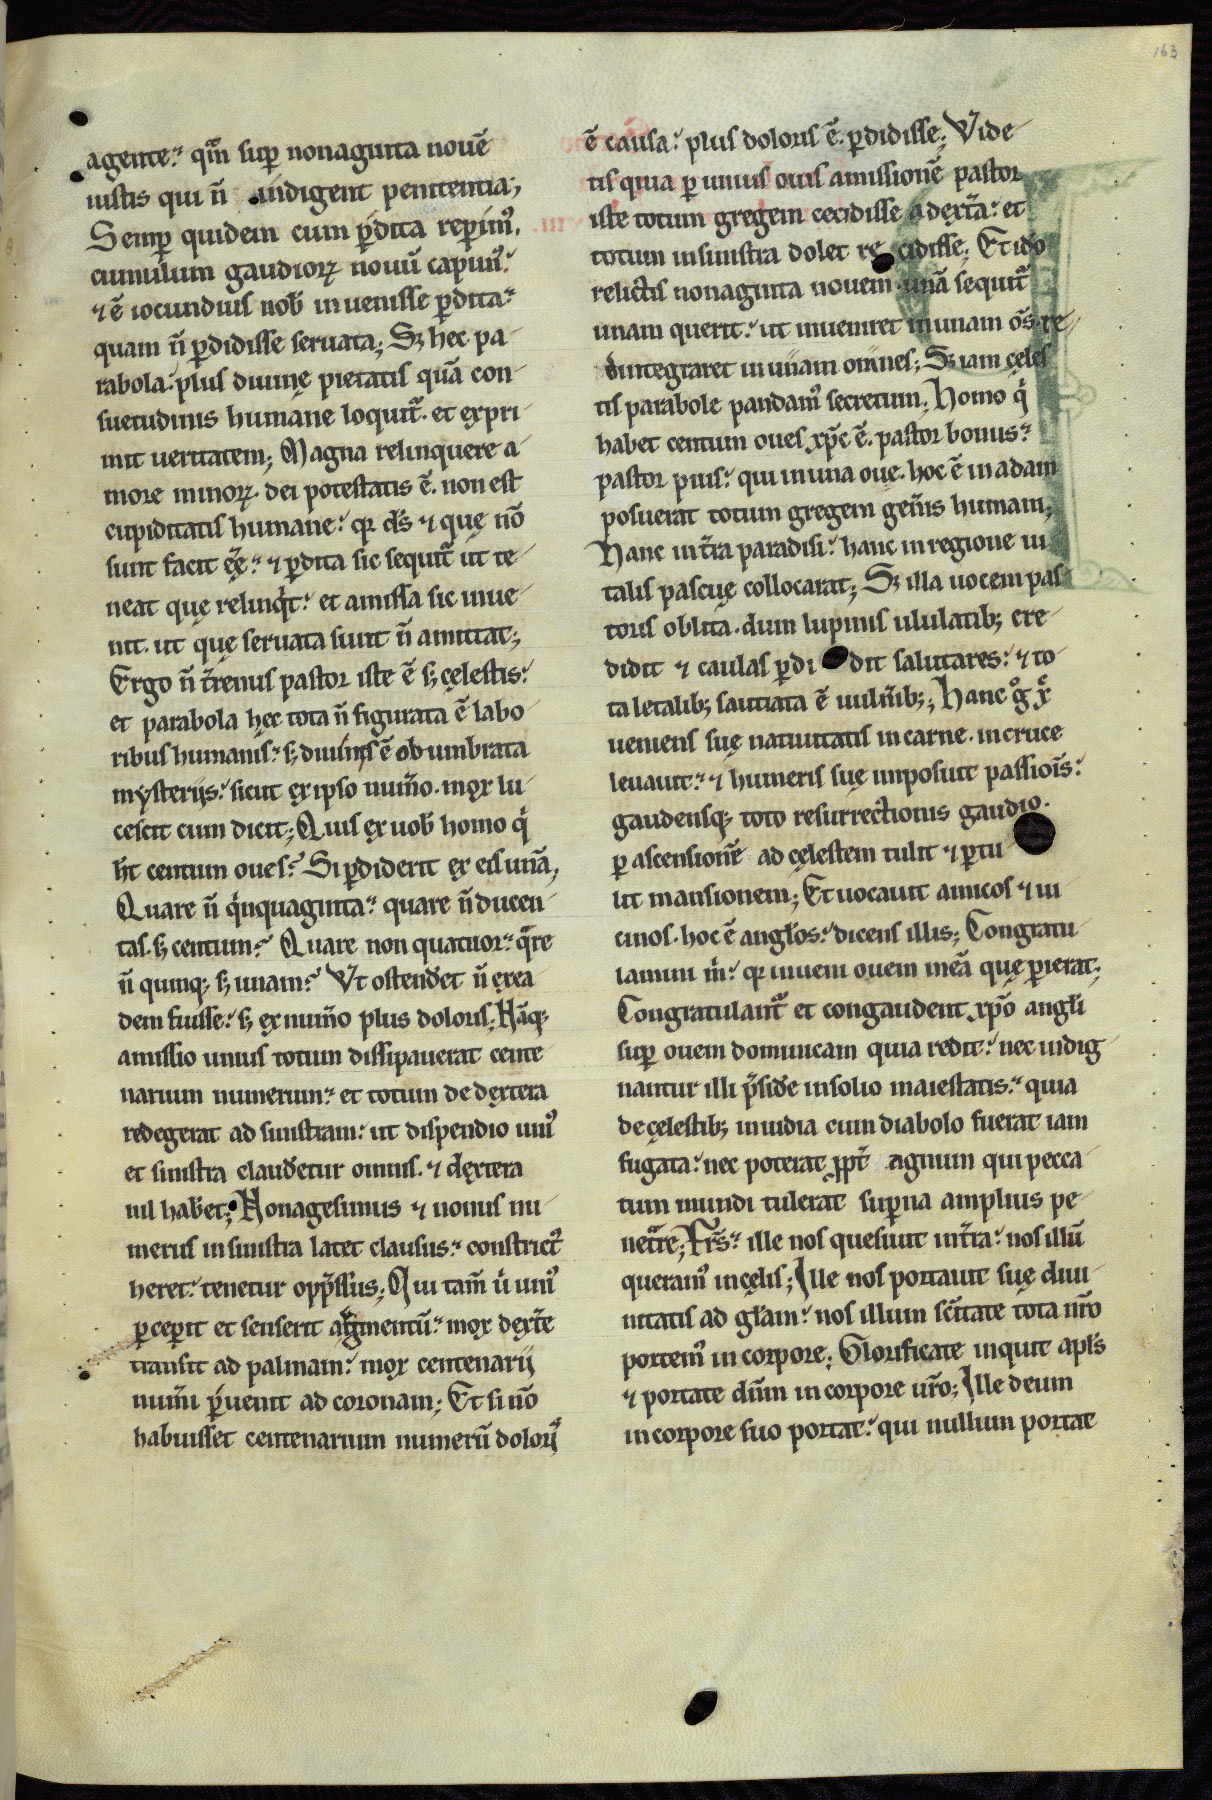 163
agente. qm̅ sup̲ nonaginta nouē
iustis qui n̄ indigent penitentia;
Semp̲ quidem cum p̲dita rep̲im᷒,
cumulum gaudioꝝ nouū capim᷒.
⁊ ē iocundius nob̅ inuenisse p̲dita.
quam n̄ p̲didisse seruata; Sꝫ hec pa
rabola. plus diuinę pietatis quā con
suetudinis humane loquit᷑. et expri
mit ueritatem; Magna relinquere a
more minoꝝ. dei potestatis ē. non est
cupiditatis humane. qr ds̅ ⁊ quę nō
sunt facit eē. ⁊ p̲dita sic sequit᷑ ut te
neat quę relinqͥt. et amissa sic inue
nit. ut quę seruata sunt n̄ amittat;
Ergo n̄ t̾renus pastor iste ē sꝫ cęlestis.
et parabola hec tota n̄ figurata ē labo
ribus humanis. sꝫ diuinis ē obumbrata
mysterijs. sicut ex ipso num̾o. mox lu
cescit cum dicit; Quis ex uob̅ homo qͥ
ht̅ centum oues? Si p̲diderit ex eis unā,
Quare n̄ qͥnquaginta. quare n̄ ducen
tas. sꝫ centum? Quare non quatuor. qᷓre
n̄ quinqꝫ sꝫ unam? Vt ostend̾et n̄ exea
dem fuisse. sꝫ ex num̾o plus doloris; Nāqꝫ
amissio unius totum dissipauerat cente
narium numerum. et totum de dextera
redegerat ad sinistram. ut dispendio uni᷒
et sinistra claud̾etur omnis. ⁊ dextera
nil hab̾et; Nonagesimus ⁊ nonus nu
merus in sinistra latet clausus. constrict᷒
heret. tenetur opp̾ssus; Qui tam̅ uͥ uni᷒
p̲cep̲it et senserit augmentū. mox dext̾e
transit ad palmam. mox centenarij
num̾i p̲uenit ad coronam; Et si nō
habuisset centenarium numerū dolori᷒
ē causa. plus doloris ē. p̲didisse; Vide
tis quia p̲ unius ouis amissionē pastor
iste totum gregem cecidisse a dext̾a. et
totum in sinistra dolet recidisse; Et ido
relictis nonaginta nouem unā sequit᷑
unam querit. ut inueniret in unam oēs. re
dintegraret in unam omnes; Sꝫ iam cęles
tis parabole pandam᷒ secretum; Homo qͥ
habet centum oues xpc̅ ē. pastor bonus.
pastor pius. qui in una oue. hoc ē in adam
posuerat totum gregem gen̾is humani;
Hanc int̾ra paradisi. hanc in regione ui
talis pascuę collocarat; Sꝫ illa uocem pas
toris oblita. dum lupinis ululatibꝫ cre
didit ⁊ caulas p̲didit salutares. ⁊ to
ta letalibꝫ sauciata ē uuln̾ibꝫ; Hanc gͦ xͥ
ueniens suę natiuitatis in carne. in cruce
leuauit. ⁊ humeris suę imposuit passiois̅.
gaudensqꝫ toto resurrectionis gaudio.
p̲ ascensionē ad cęlestem tulit ⁊ p̲tu
lit mansionem; Et uocauit amicos ⁊ ui
cinos. hoc ē angl̅os. dicens illis; Congratu
lamini m̅. qr inueni ouem meā quę p̲ierat;
Congratulant᷑ et congaudent xpo̅ angl̅i
sup̲ ouem dominicam quia rediit. nec indig
nantur illi p̾sid̾e in solio maiestatis. quia
de cęlestibꝫ inuidia cum diabolo fuerat iam
fugata. nec poterat ppt̾ agnum qui pecca
tum mundi tulerat sup̲na amplius pe
net᷑re; Frs̅. ille nos quesiuit int̾ra. nos illū
queram᷒ in cęlis; Ille nos portauit suę diui
nitatis ad gl̅am. nos illum sc̅itate tota nr̅o
portem᷒ in corpore; Glorificate inquit apl̅s
⁊ portate dn̅m in corpore ur̅o; Ille deum
in corpore suo portat. qui nullum portat